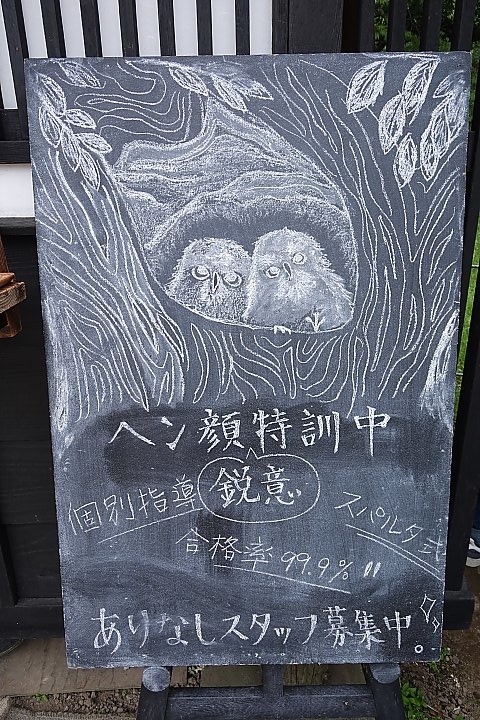 ヘン顔特訓中
鋭意
個別指導
スパルタ式
合格率99.9%〃
ありなしスタッフ募集中。